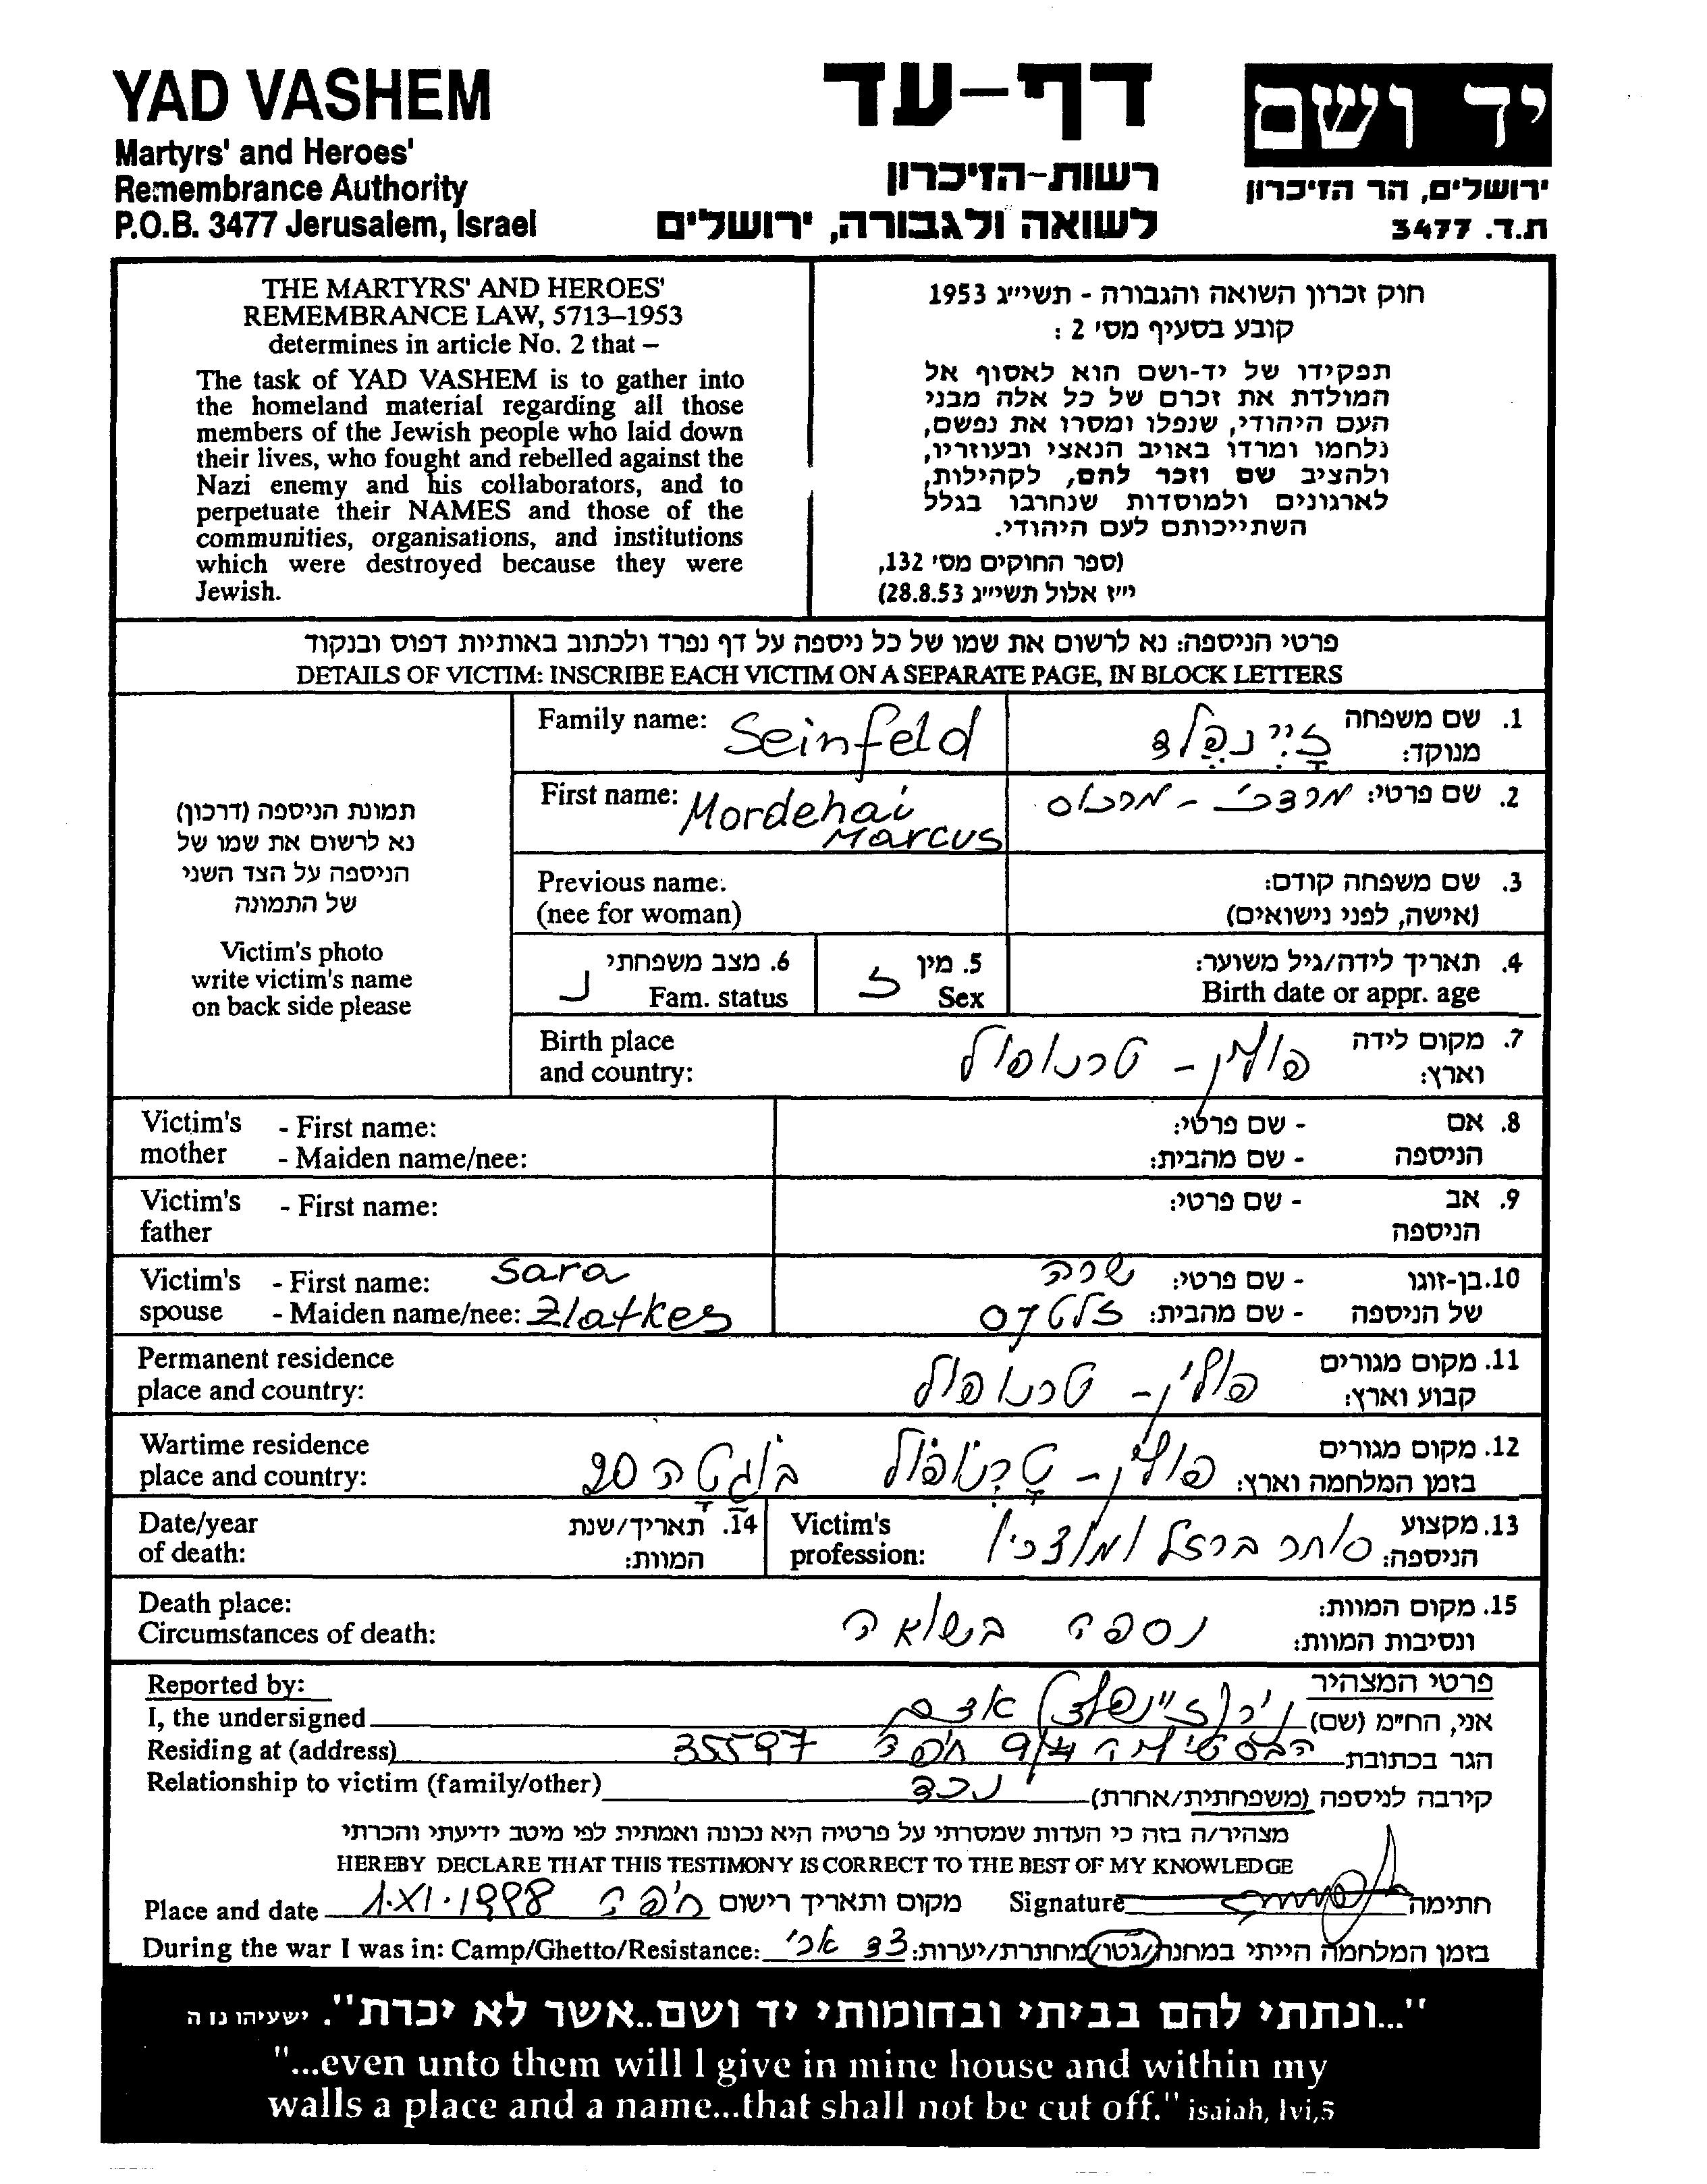 YAD VASHEM
Martyrs' and Heroes'
Remembrance Authority
P.O.B. 3477 Jerusalem, Israel
דף-עד
רשות-הזיכרון
לשואה ולגבורה, ירושלים
יד ושם
ירושלים, הר הזיכרון
ת.ד. 3477
THE MARTYRS' AND HEROES'
REMEMBRANCE LAW, 5713–1953
determines in article No. 2 that –
The task of YAD VASHEM is to gather into
the homeland material regarding all those
members of the Jewish people who laid down
their lives, who fought and rebelled against the
Nazi enemy and his collaborators, and to
perpetuate their NAMES and those of the
communities, organisations, and institutions
which were destroyed because they were
Jewish.
חוק זכרון השואה והגבורה - תשי״ג 1953
קובע בסעיף מס' 2 :
תפקידו של יד-ושם הוא לאסוף אל
המולדת את זכרם של כל אלה מבני
העם היהודי, שנפלו ומסרו את נפשם,
נלחמו ומרדו באויב הנאצי ובעוזריו,
ולהציב שם וזכר להם, לקהילות,
לארגונים ולמוסדות שנחרבו בגלל
השתייכותם לעם היהודי.
(ספר החוקים מס' 132,
י״ז אלול תשי״ג 28.8.53)
פרטי הניספה: נא לרשום את שמו של כל ניספה על דף נפרד ולכתוב באותיות דפוס ובנקוד
DETAILS OF VICTIM: INSCRIBE EACH VICTIM ON A SEPARATE PAGE, IN BLOCK LETTERS
תמונת הניספה (דרכון)
נא לרשום את שמו של
הניספה על הצד השני
של התמונה
Victim's photo
write victim's name
on back side please
Family name: Seinfeld
1. שם משפחה
מנוקד: זַיְינְפֶלד
First name: Mordehai
Marcus
2. שם פרטי: מרדכי - מרכוס
Previous name:
(nee for woman)
3. שם משפחה קודם:
(אישה, לפני נישואים)
6. מצב משפחתי נ
Fam. status
5. מין ז
Sex
4. תאריך לידה/גיל משוער:
Birth date or appr. age
Birth place
and country:
7. מקום לידה
וארץ: פולין - טרנופול
Victim's mother - First name:
- Maiden name/nee:
8. אם הניספה - שם פרטי:
- שם מהבית:
Victim's father - First name:
9. אב הניספה - שם פרטי:
Victim's spouse - First name: Sara
- Maiden name/nee: Zlatkes
10. בן-זוגו של הניספה - שם פרטי: שרה
- שם מהבית: זלטקס
Permanent residence
place and country:
11. מקום מגורים
קבוע וארץ: פולין - טרנופול
Wartime residence
place and country:
12. מקום מגורים
בזמן המלחמה וארץ: פולין - טרנופול 20
Date/year
of death:
14. תאריך/שנת
המוות:
Victim's
profession:
13. מקצוע
הניספה: סוחר ברזל ומוצריו
Death place:
Circumstances of death:
15. מקום המוות:
ונסיבות המוות: נספה בשואה
Reported by:
פרטי המצהיר
I, the undersigned
אני, הח״מ (שם) ניר (זיינפלד) אדם
Residing at (address)
הגר בכתובת 9/4 חיפה 35597
Relationship to victim (family/other)
קירבה לניספה (משפחתית/אחרת) נכד
מצהיר/ה בזה כי העדות שמסרתי על פרטיה היא נכונה ואמתית לפי מיטב ידיעתי והכרתי
HEREBY DECLARE THAT THIS TESTIMONY IS CORRECT TO THE BEST OF MY KNOWLEDGE
Place and date 1.XI.1998 חיפה מקום ותאריך רישום
Signature חתימה
During the war I was in: Camp/Ghetto/Resistance:
בזמן המלחמה הייתי במחנה/גטו/מחתרת/יערות: צד ארי
"...ונתתי להם בביתי ובחומותי יד ושם..אשר לא יכרת". ישעיהו נו ה
"...even unto them will I give in mine house and within my
walls a place and a name...that shall not be cut off." isaiah, lvi,5